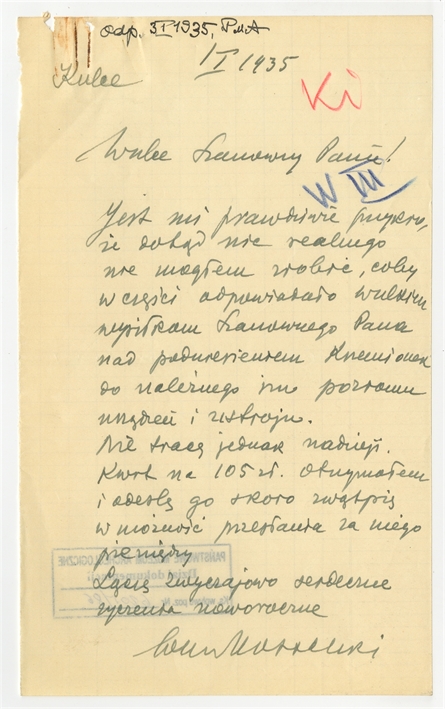 odp. 3 I 1935, PMA
1/I 1935
Ki
Wielce Szanowny Panie!
W III
Jest mi prawdziwie przykro,
że dotąd nic realnego
nie mogłem zrobić, coby
w części odpowiadało wielkim
wysiłkom Szanownego Pana
nad podniesieniem Krzemionek
do należnego im poziomu
urządzeń i ustroju.
Nie tracę jednak nadziei.
Kwit na 105 zł. otrzymałem
i odeślę go skoro zwątpię
w możność przesłania za niego
pieniędzy
Łączę zwyczajowo serdeczne
życzenia noworoczne
PAŃSTWOWE MUZEUM ARCHEOLOGICZNE
Dział dokumentacji